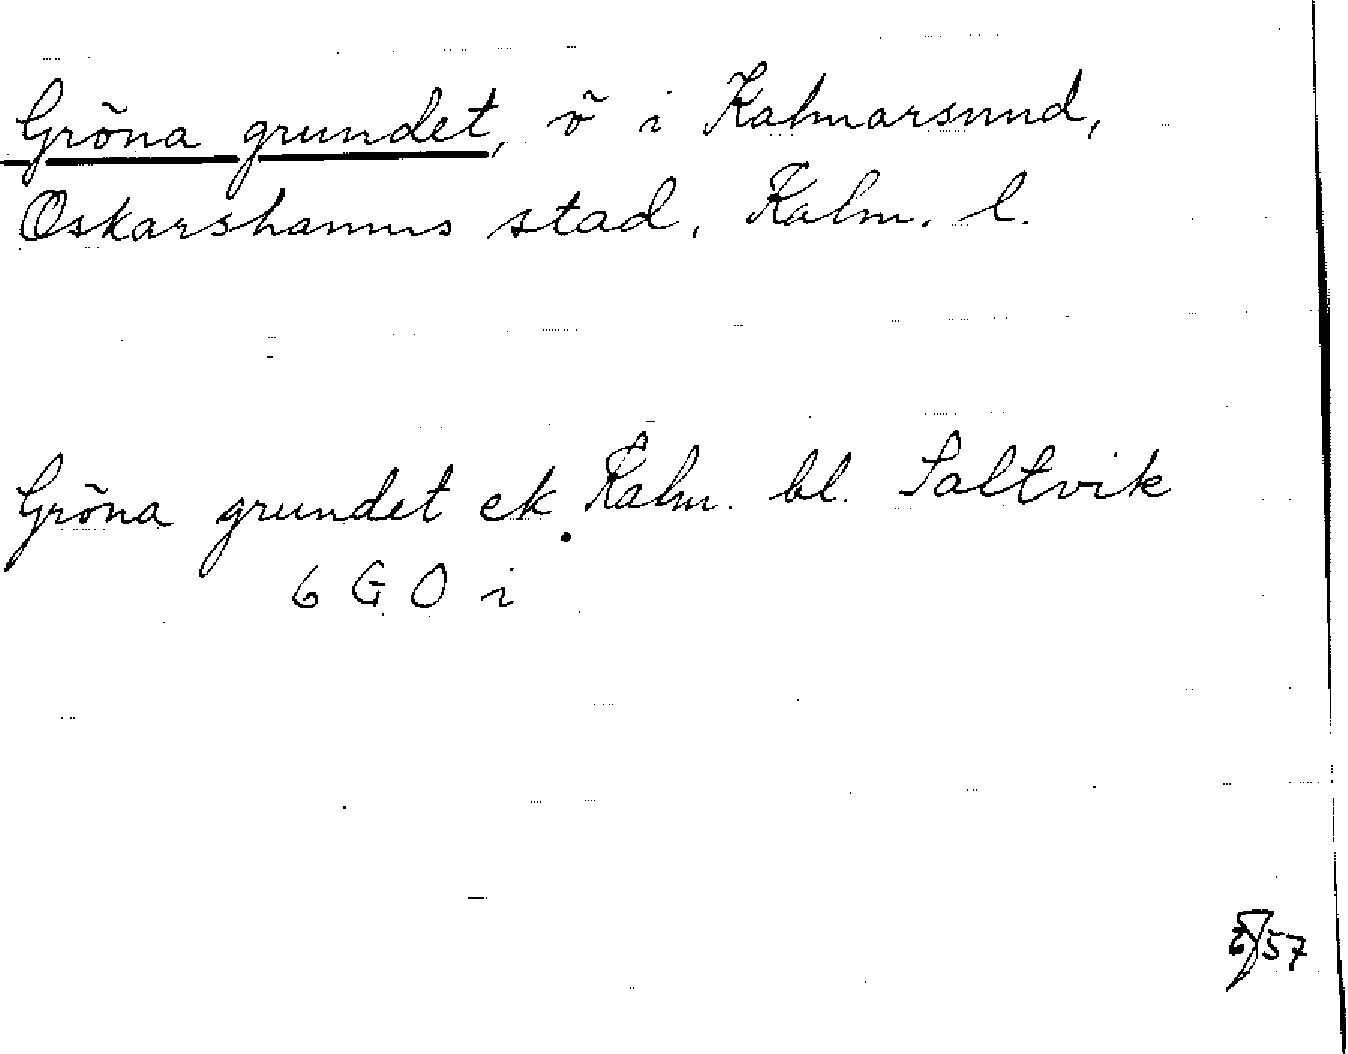 Gröna grundet, ö i Kalmarsund,
Oskarshamns stad, Kalm. l.
Gröna grundet ek. Kalm. bl. Saltvik
6 G O i
57